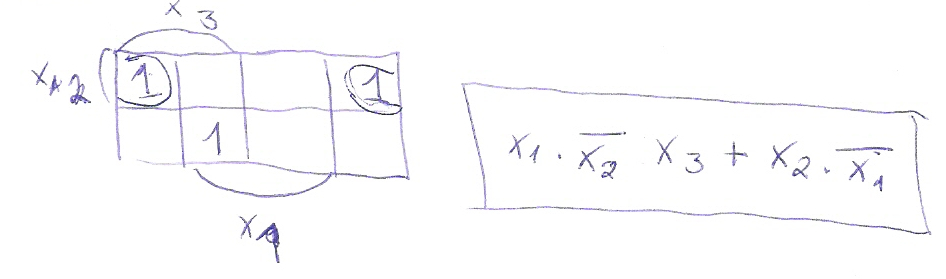 x 3
x 2 1 1
1
x1
x1 . x̅2̅ x3 + x2 . x̅1̅